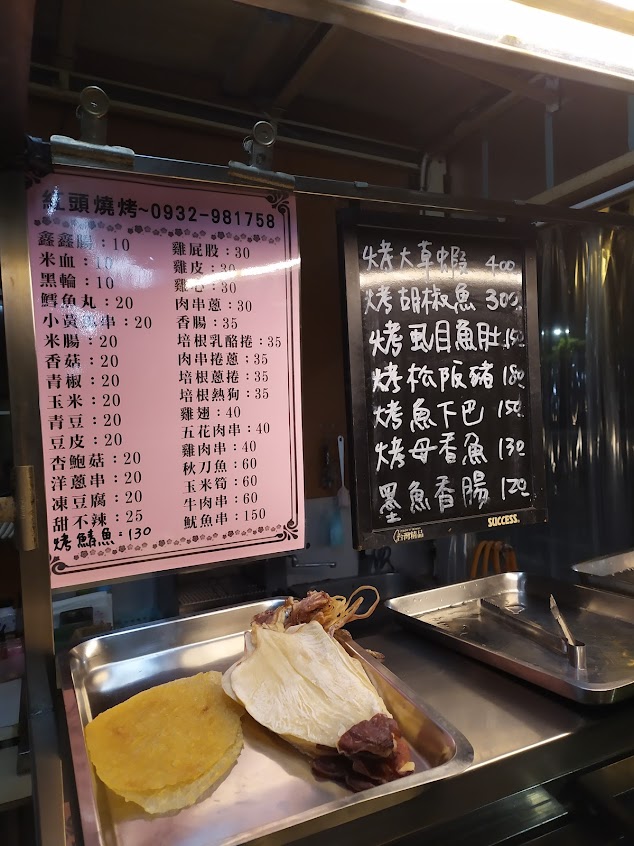 紅頭燒烤~0932-981758
鑫鑫腸：10
米血：10
黑輪：10
鱈魚丸：20
小黃瓜串：20
米腸：20
香菇：20
青椒：20
玉米：20
青豆：20
豆皮：20
杏鮑菇：20
洋蔥串：20
凍豆腐：20
甜不辣：25
烤鯖魚：130
雞屁股：30
雞皮：30
雞心：30
肉串蔥：30
香腸：35
培根乳酪捲：35
肉串捲蔥：35
培根蔥捲：35
培根熱狗：35
雞翅：40
五花肉串：40
雞肉串：40
秋刀魚：60
玉米筍：60
牛肉串：60
魷魚串：150
烤大草蝦 400
烤胡椒魚 300
烤虱目魚肚 150
烤松阪豬 180
烤魚下巴 150
烤母香魚 130
墨魚香腸 120
台灣精品
SUCCESS